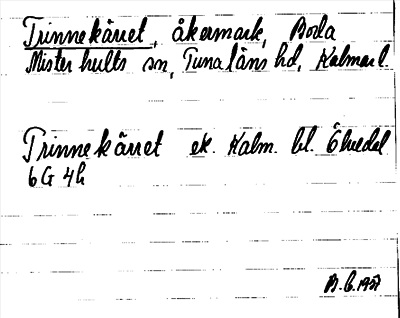 Trinnekärret, åkermark, Boda
Misterhults sn, Tunaläns hd, Kalmar l.
Trinnekärret ek. Kalm. bl. Ölvedal
6G 4h
B.G. 1957